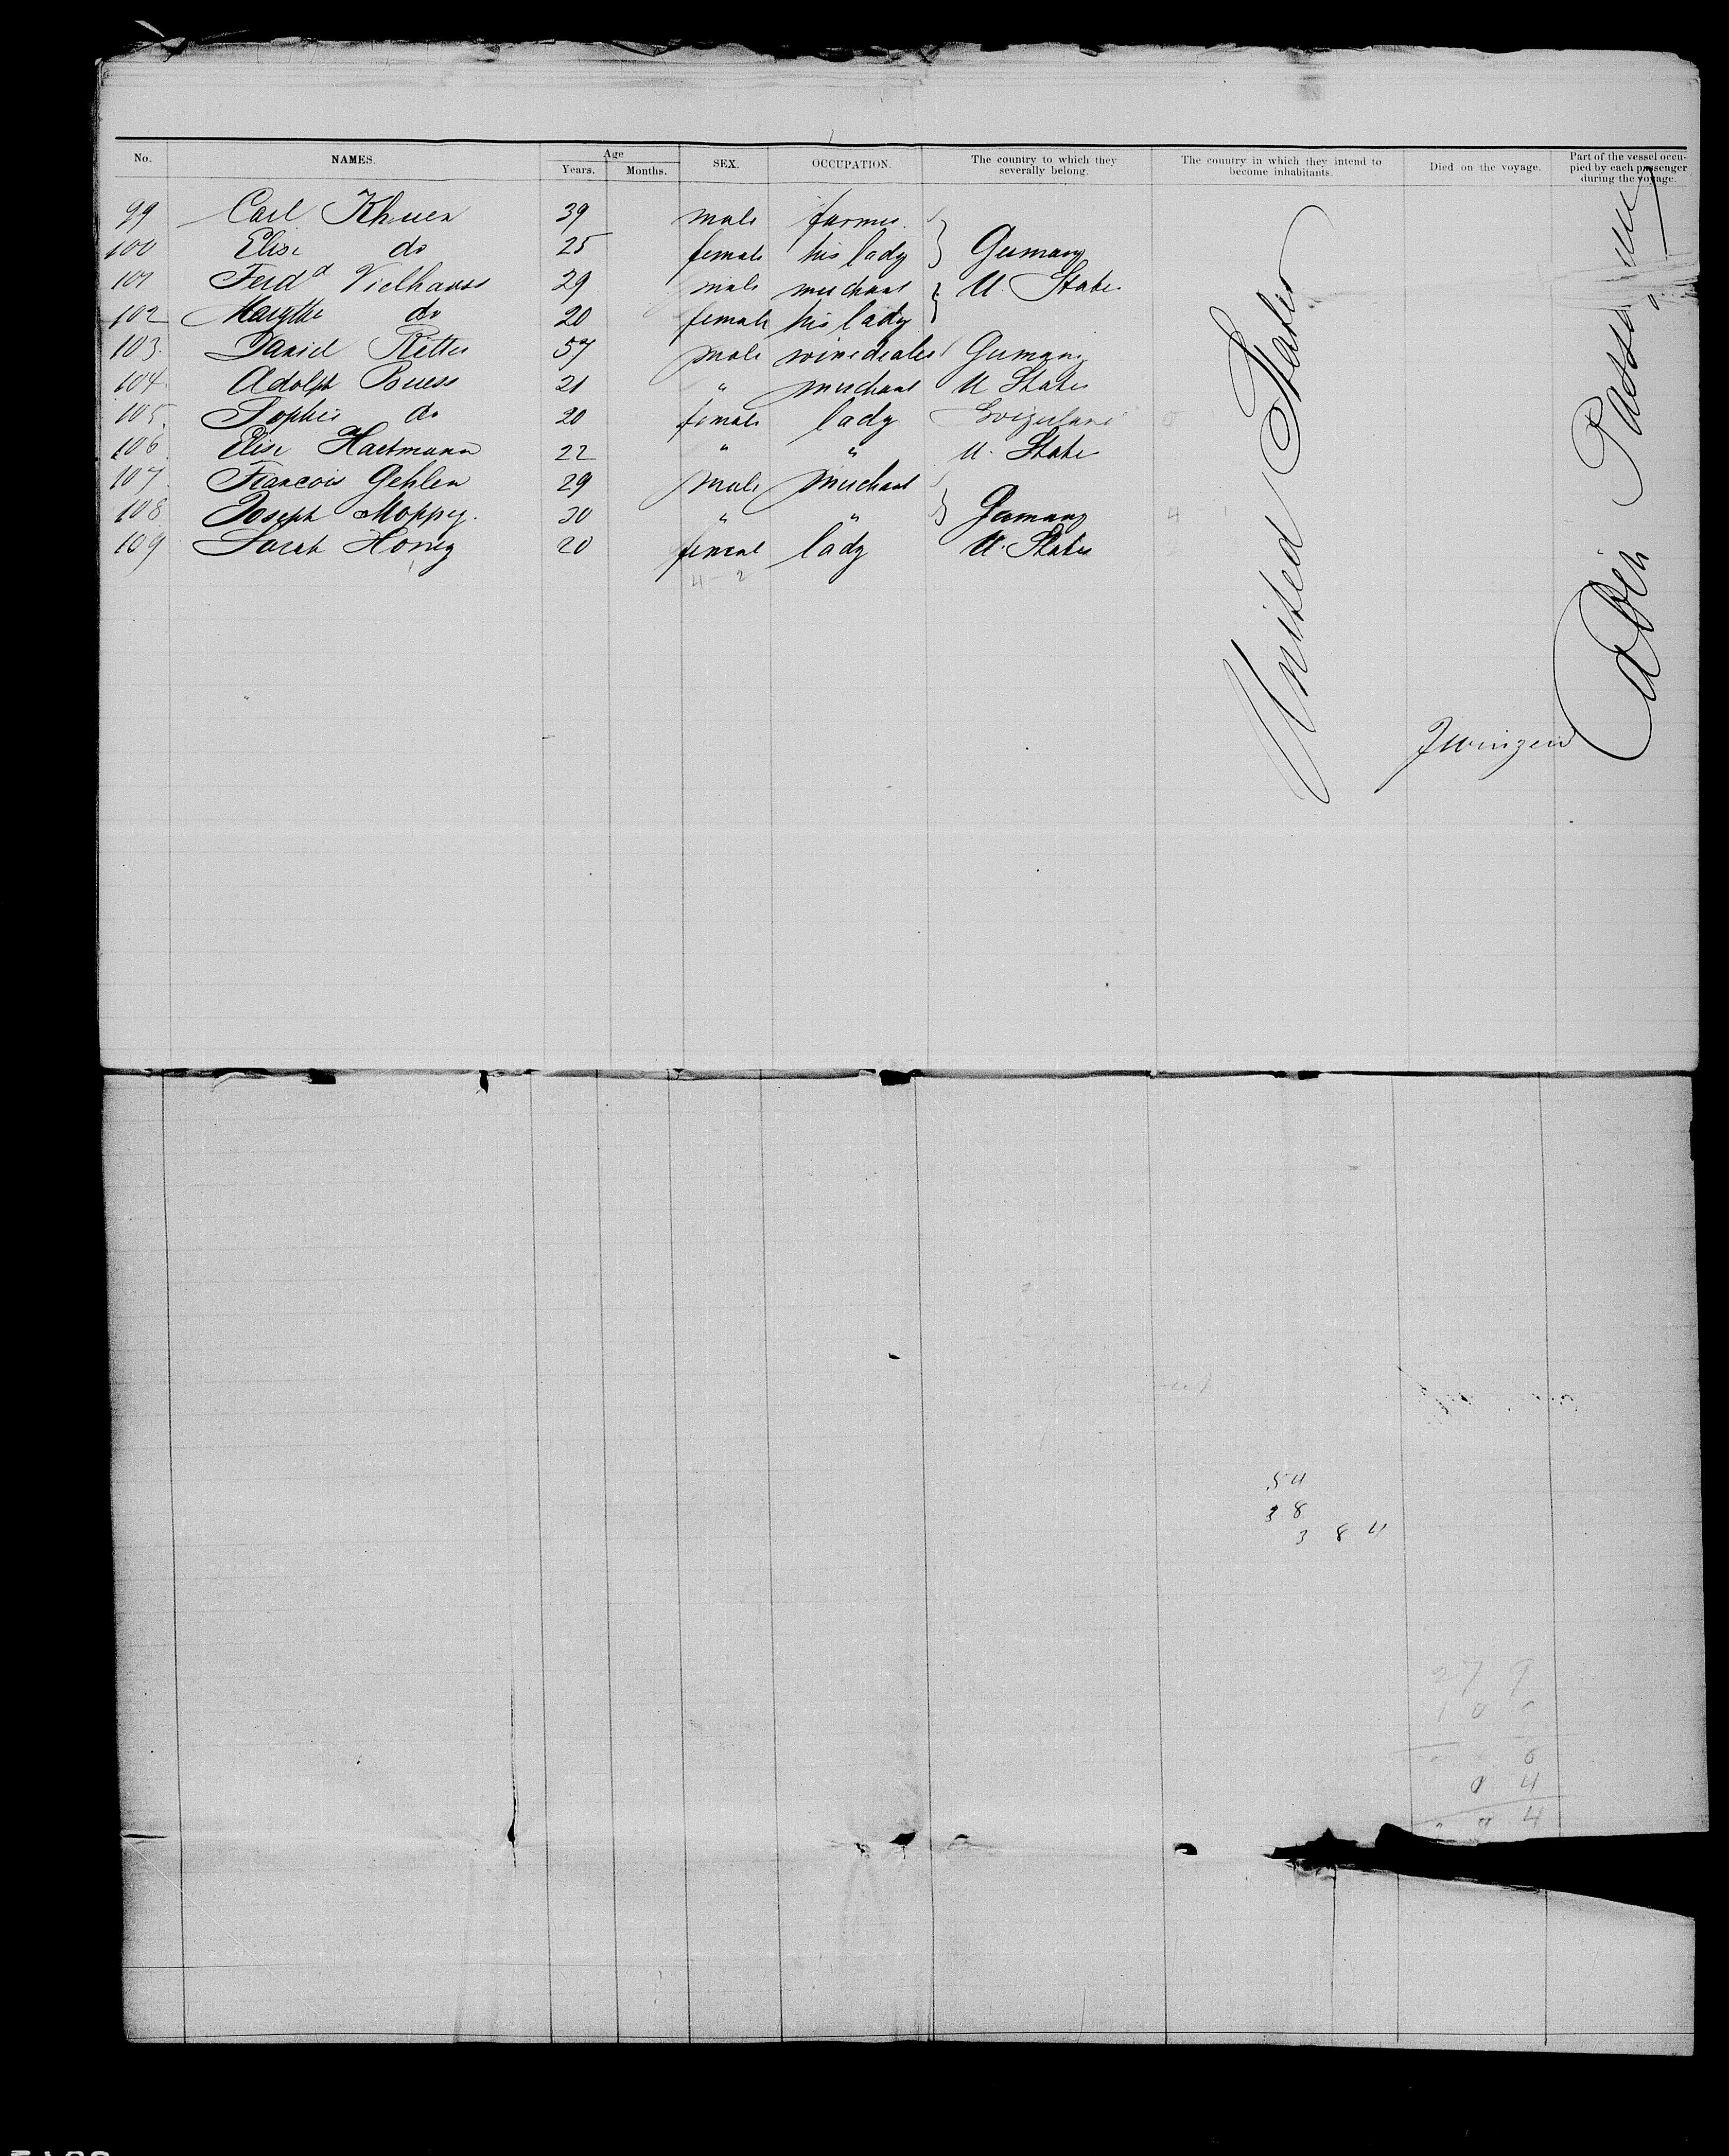 No. NAMES. Age Years. Months. SEX. OCCUPATION. The country to which they severally belong. The country in which they intend to become inhabitants. Died on the voyage. Part of the vessel occupied by each passenger during the voyage.
99 Carl Khuen 39 male farmer
100 Elise do 25 female his lady Germany
101 Ferdd Vielhauss 29 male merchant U States
102 do 20 female his lady
103. Daniel Ritter 57 male winedealer Germany
104. Adolph Buess 21 " merchant U States
105. Sophie do 20 female lady
106. Elise Hartmann 22 " " U. States
107. Francois Gehlen 29 male merchant
108 Joseph Moppey. 30 " " Germany
109 Sarah Honig 20 female lady U. States
4-2
United States
Cabin
54
38
384
279